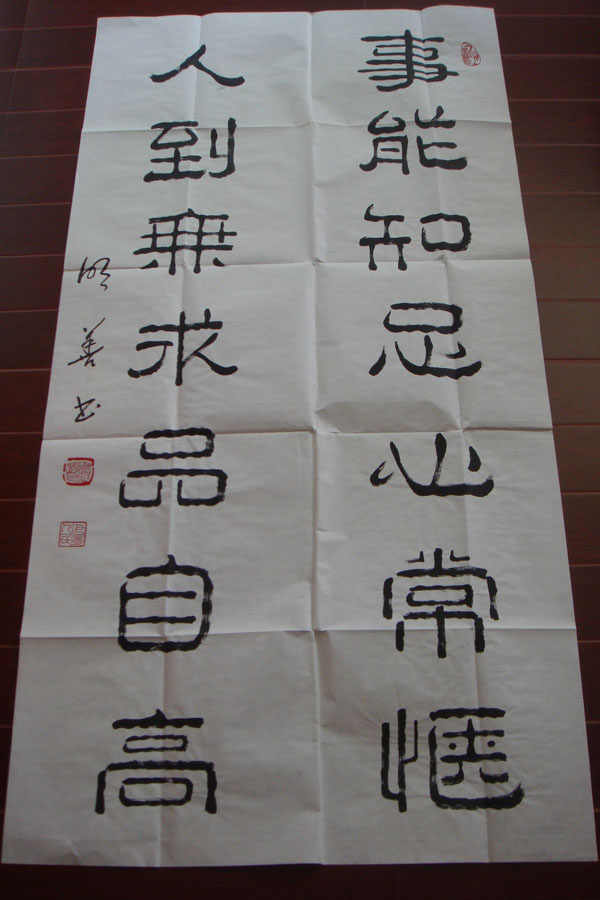 事能知足心常惬
人到無求品自高
善书